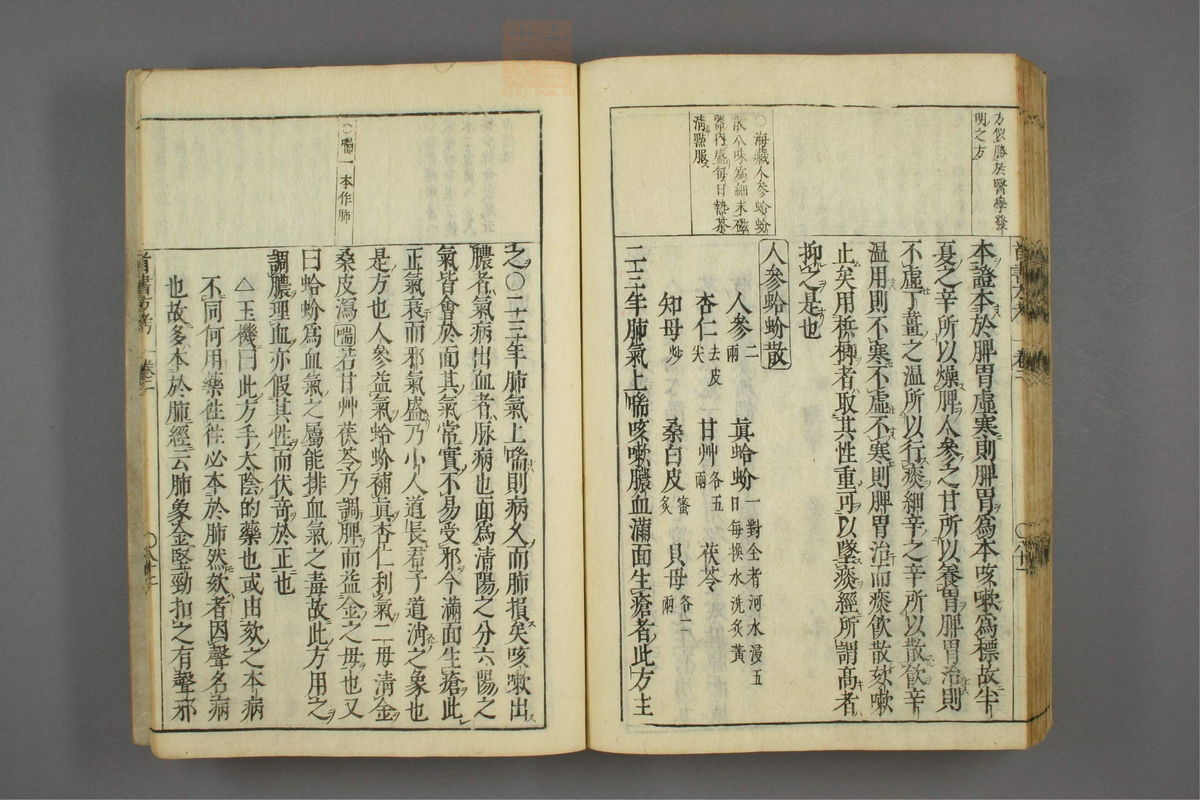 方似勝於醫學發
明之方
本證本於脾胃虛寒則脾胃爲本咳嗽爲標故半
夏之辛所以燥脾人參之甘所以養胃脾胃治則
不虛丁薑之温所以行痰細辛之辛所以散飲辛
温用則不寒不虛不寒則脾胃治而痰飲散欬嗽
止矣用梹榔者取其性重可以墜痰經所謂高者
抑之是也
○海藏人參蛤蚧
散八味爲細末磁
器內盛每日熱茶
清點服
人參蛤蚧散
人參二兩 眞蛤蚧一對全者河水浸五日每換水洗炙黃
杏仁去皮尖 甘艸各五兩 茯苓
知母炒 桑白皮蜜炙 貝母各二兩
二三年肺氣上喘咳嗽膿血滿面生瘡者此方主
之○二三年肺氣上喘則病久而肺損矣咳嗽出
膿者氣病出血者脉病也面爲清陽之分六陽之
氣皆會於面其氣常實不易受邪今滿面生瘡此
正氣衰而邪氣盛乃小人道長君子道消之象也
是方也人參益氣蛤蚧補眞杏仁利氣二母清金
○喘一本作肺
桑皮瀉喘若甘艸茯苓乃調脾而益金之母也又
曰蛤蚧爲血氣之屬能排血氣之毒故此方用之
調膿理血亦假其性而伏奇於正也
△玉機曰此方手太陰的藥也或出欬之本病
不同何用藥徃徃必本於肺然欬者因聲名病
也故多本於肺經云肺象金堅勁扣之有聲邪
卷二